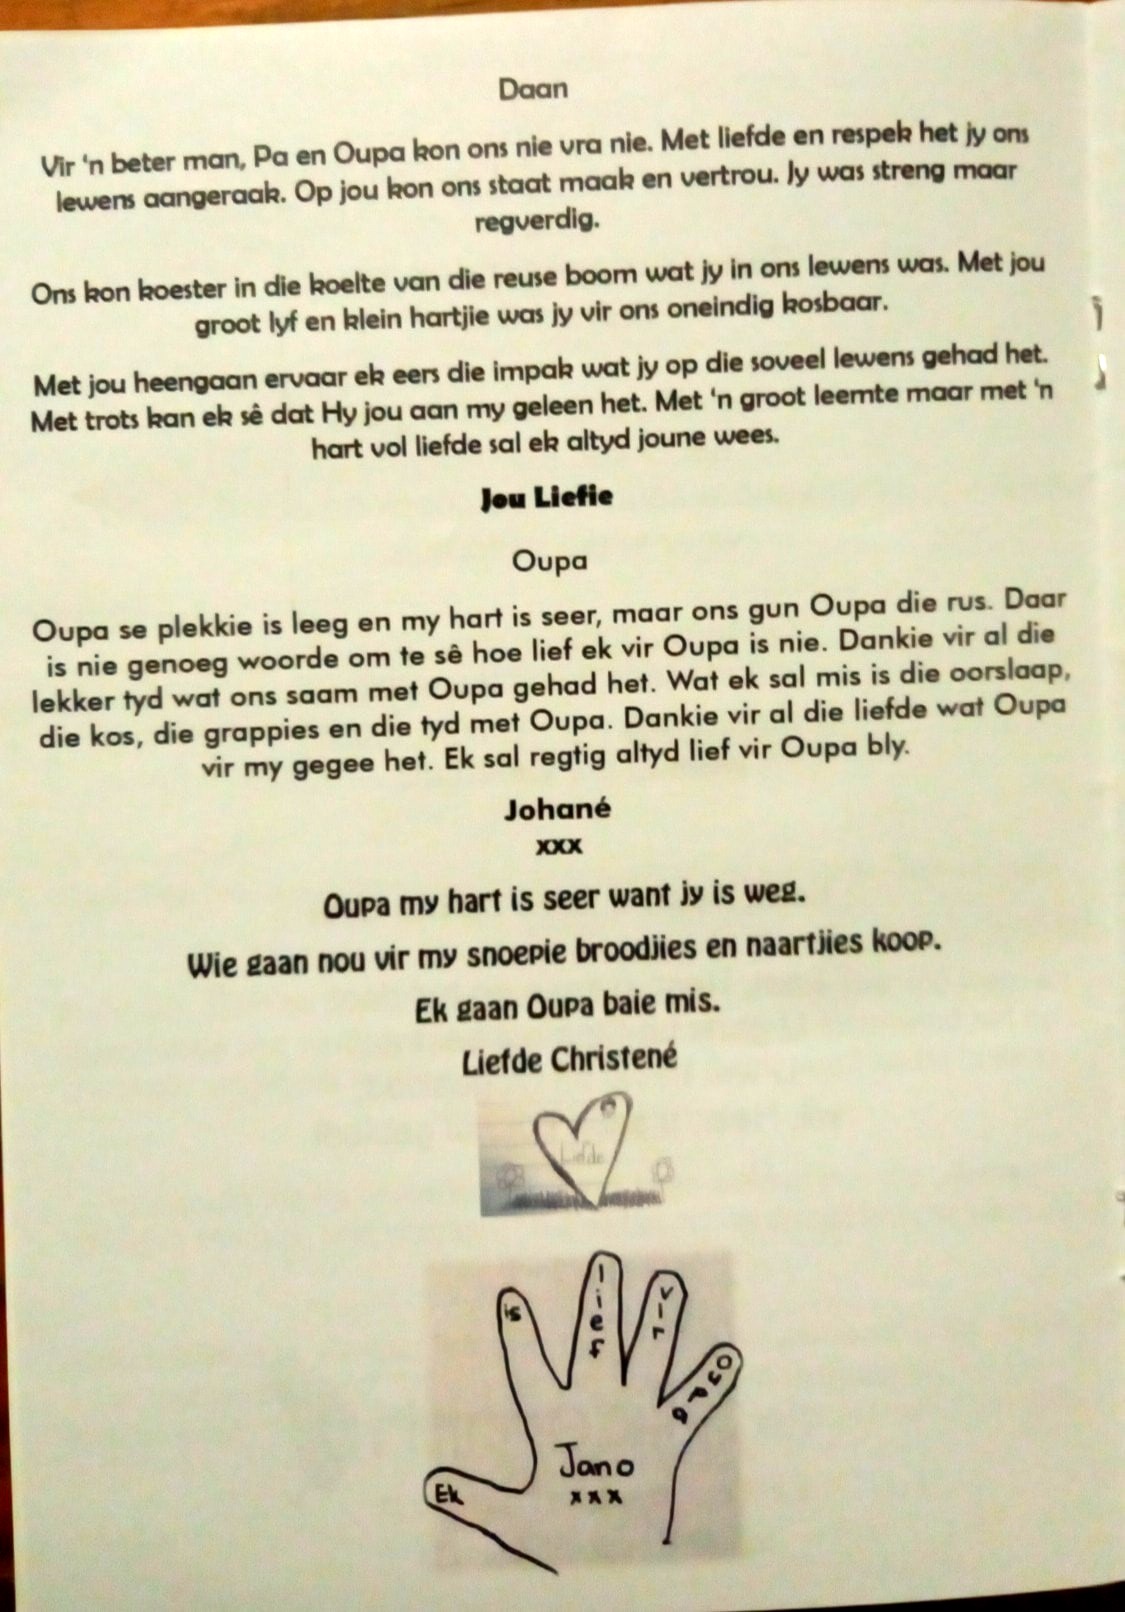 Daan
Vir 'n beter man, Pa en Oupa kon ons nie vra nie. Met liefde en respek het jy ons
lewens aangeraak. Op jou kon ons staat maak en vertrou. Jy was streng maar
regverdig.
Ons kon koester in die koelte van die reuse boom wat jy in ons lewens was. Met jou
groot lyf en klein hartjie was jy vir ons oneindig kosbaar.
Met jou heengaan ervaar ek eers die impak wat jy op die soveel lewens gehad het.
Met trots kan ek sê dat Hy jou aan my geleen het. Met 'n groot leemte maar met 'n
hart vol liefde sal ek altyd joune wees.
Jou Liefie
Oupa
Oupa se plekkie is leeg en my hart is seer, maar ons gun Oupa die rus. Daar
is nie genoeg woorde om te sê hoe lief ek vir Oupa is nie. Dankie vir al die
lekker tyd wat ons saam met Oupa gehad het. Wat ek sal mis is die oorslaap,
die kos, die grappies en die tyd met Oupa. Dankie vir al die liefde wat Oupa
vir my gegee het. Ek sal regtig altyd lief vir Oupa bly.
Johané
xxx
Oupa my hart is seer want jy is weg.
Wie gaan nou vir my snoepie broodjies en naartjies koop.
Ek gaan Oupa baie mis.
Liefde Christené
Liefde
Ek
is
lief
vir
oupa
Jano
xxx